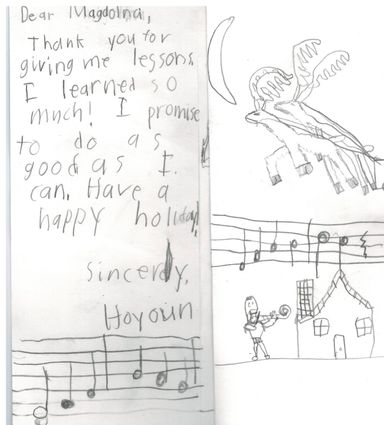 Dear Magdolna,
Thank you for
giving me lessons
I learned so
much! I promise
to do as
good as I
can. Have a
happy holiday
Sincerely,
Hoyoun